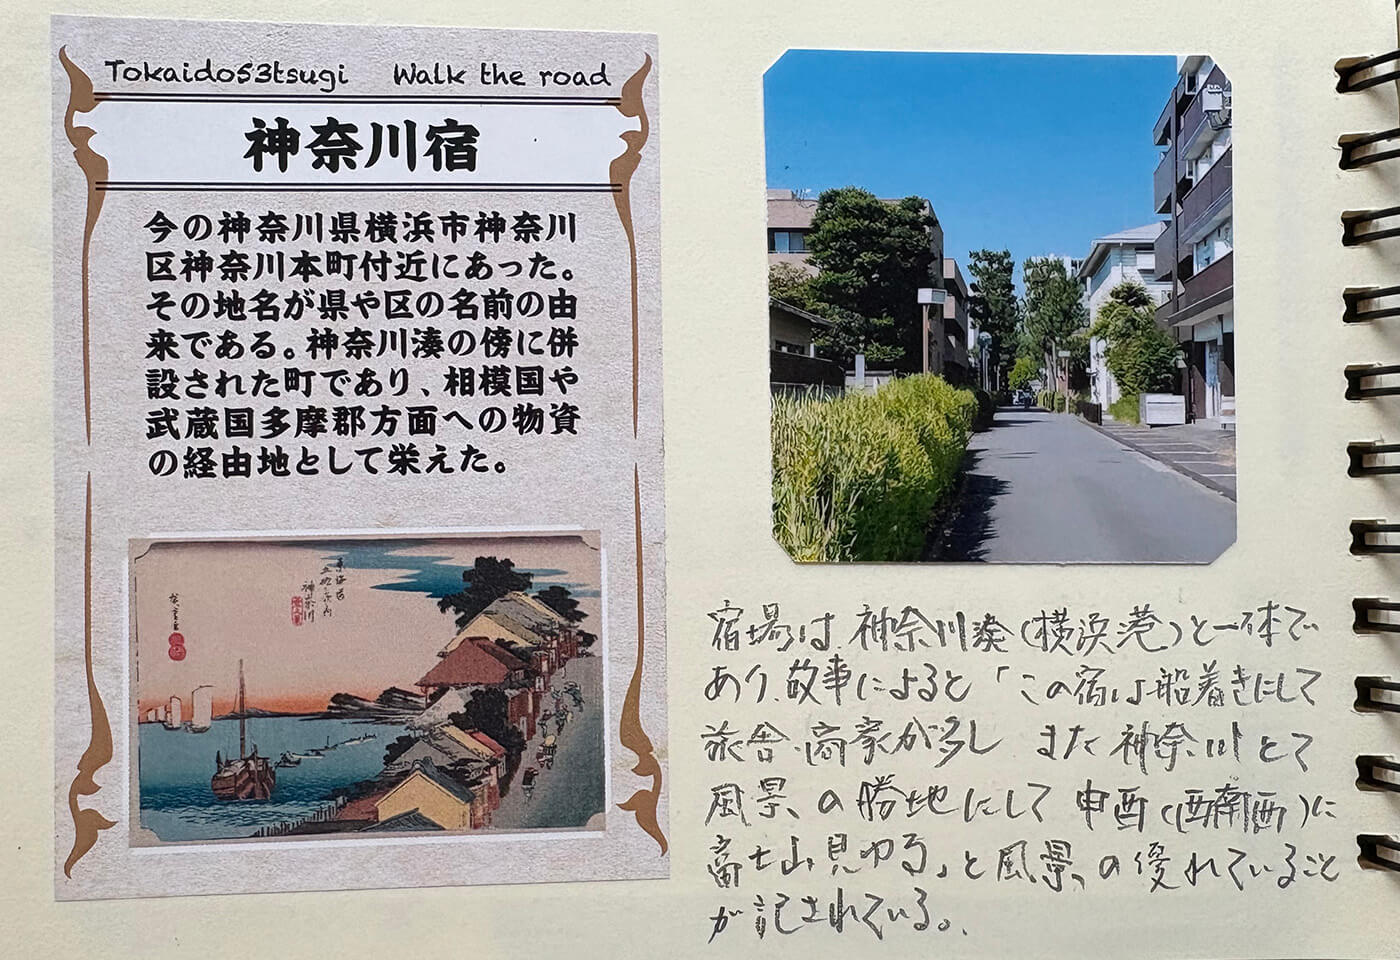 Tokaido53tsugi Walk the road
神奈川宿
今の神奈川県横浜市神奈川
区神奈川本町付近にあった。
その地名が県や区の名前の由
来である。神奈川湊の傍に併
設された町であり、相模国や
武蔵国多摩郡方面への物資
の経由地として栄えた。
東海道
五拾三次之内
神奈川
廣重画
宿場は、神奈川湊(横浜港)と一体で
あり、故事によると「この宿は船着きにして
旅舎・商家が多し また神奈川とて
風景の勝地にして 申酉(西南西)に
富士山見ゆる」と風景の優れていること
が記されている。